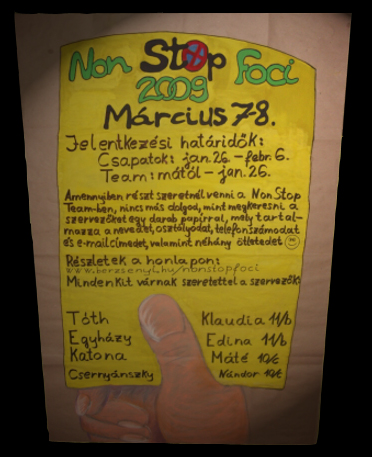 Non Stop Foci
2009
Március 7-8.
Jelentkezési határidők:
Csapatok: jan. 26. – febr. 6.
Team: mától – jan. 26.
Amennyiben részt szeretnél venni a Non Stop
Team-ben, nincs más dolgod, mint megkeresni a
szervezőket egy darab papírral, mely tartal-
mazza a nevedet, osztályodat, telefonszámodat
és e-mail címedet, valamint néhány ötletedet
Részletek a honlapon:
www.berzsenyi.hu/nonstopfoci
Mindenkit várnak szeretettel a szervezők:
Tóth Klaudia 11/b
Egyházy Edina 11/b
Katona Máté 10/c
Csernyánszky Nándor 10/c